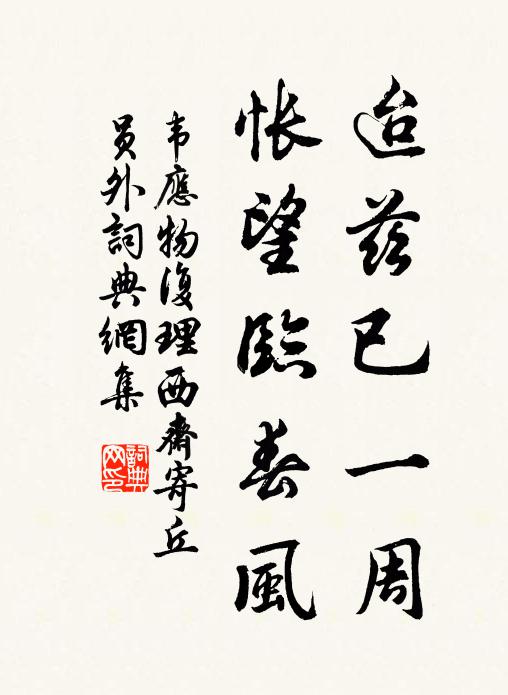 迨兹已一周
悵望臨春風
韦應物復理西齋寄丘
员外詞典網集
詞典
网印